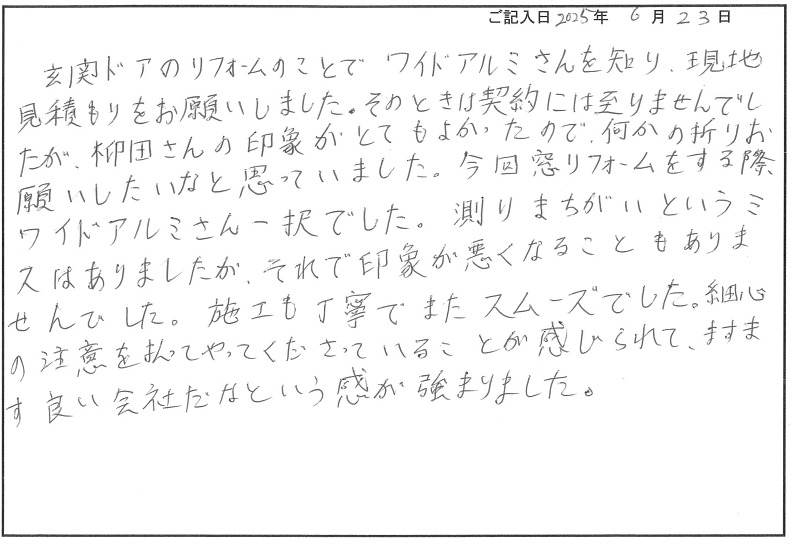 ご記入日 2025年 6月23日
玄関ドアのリフォームのことで ワイドアルミさんを知り、現地
見積もりをお願いしました。そのときは契約には至りませんでし
たが、柳田さんの印象がとてもよかったので、何かの折りお
願いしたいなと思っていました。今回窓リフォームをする際
ワイドアルミさん一択でした。測りまちがいというミ
スはありましたが、それで印象が悪くなることもありま
せんでした。施工も丁寧でまたスムーズでした。細心
の注意を払ってやってくださっていることが感じられて、ますま
す良い会社だなという感が強まりました。